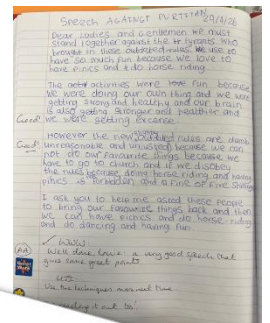 Speech AGAINST PURITAN
29/1/26
Dear Ladies and Gentlemen we must
stand together against the tyrants who
brought in these outdated rules. We use to
have so much fun because we love to
have picnics and do horse riding.
The activities were fun because
we were doing our own thing and we were
getting strong and healthy and our brain
is also getting stronger and healthier and
Good! we were getting
However the new rules are dumb
Good! unreasonable and unused because we can
not do our favourite things because we
have to go to church and if we disobey
the rules because doing horse riding and having
picnics is forbidden and a fine of five shillings
I ask you to help me asked these people
to bring our favourite things back and then
we can have picnics and do horse riding
and do dancing and having fun.
WWW:
Well done, a very good speech that
gives some great points
Use the techniques more next time